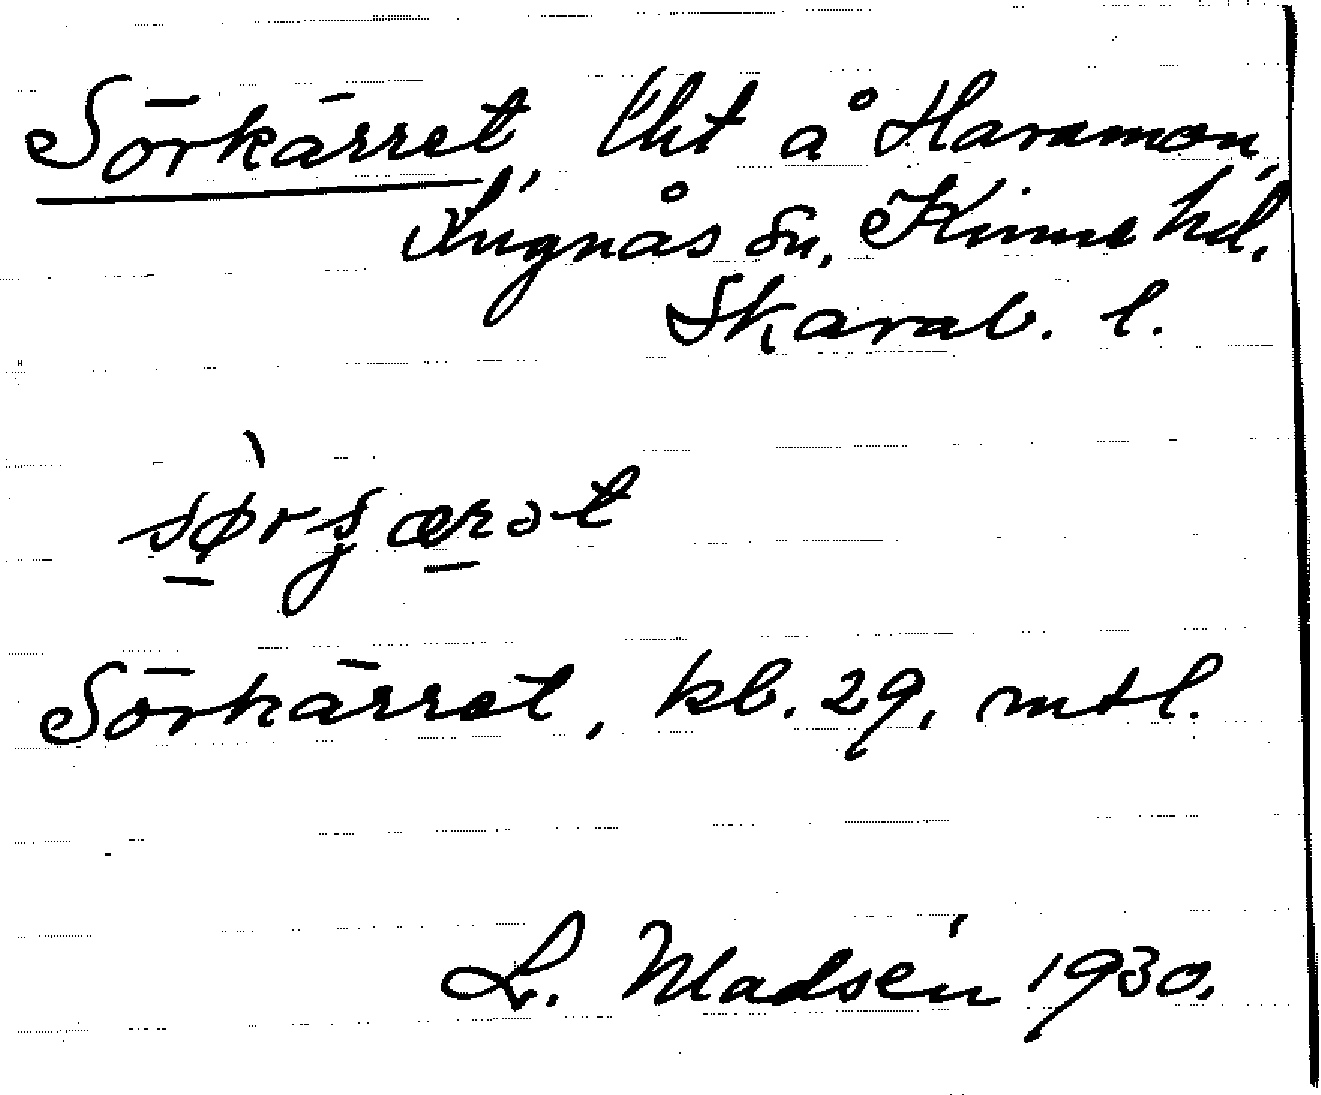 Sörkärret, lht å Haramon,
Lugnås sn, Kinne hd.
Skarab. l.
sørʂæret
Sörkärret, kb. 29, mtl.
L. Madsén 1930.